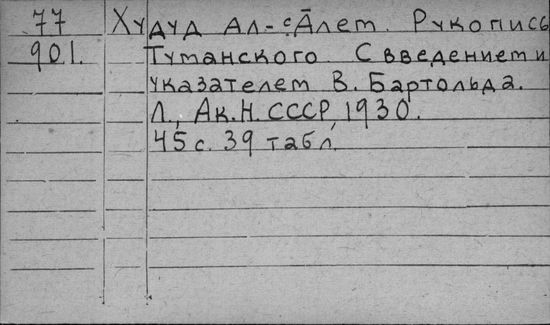 77 Худуд Ал-сĀлет. Рукопись
901. Туманского. С введением и
указателем В. Бартольда.
Л., Ак.Н. СССР, 1930.
45 с. 39 табл.